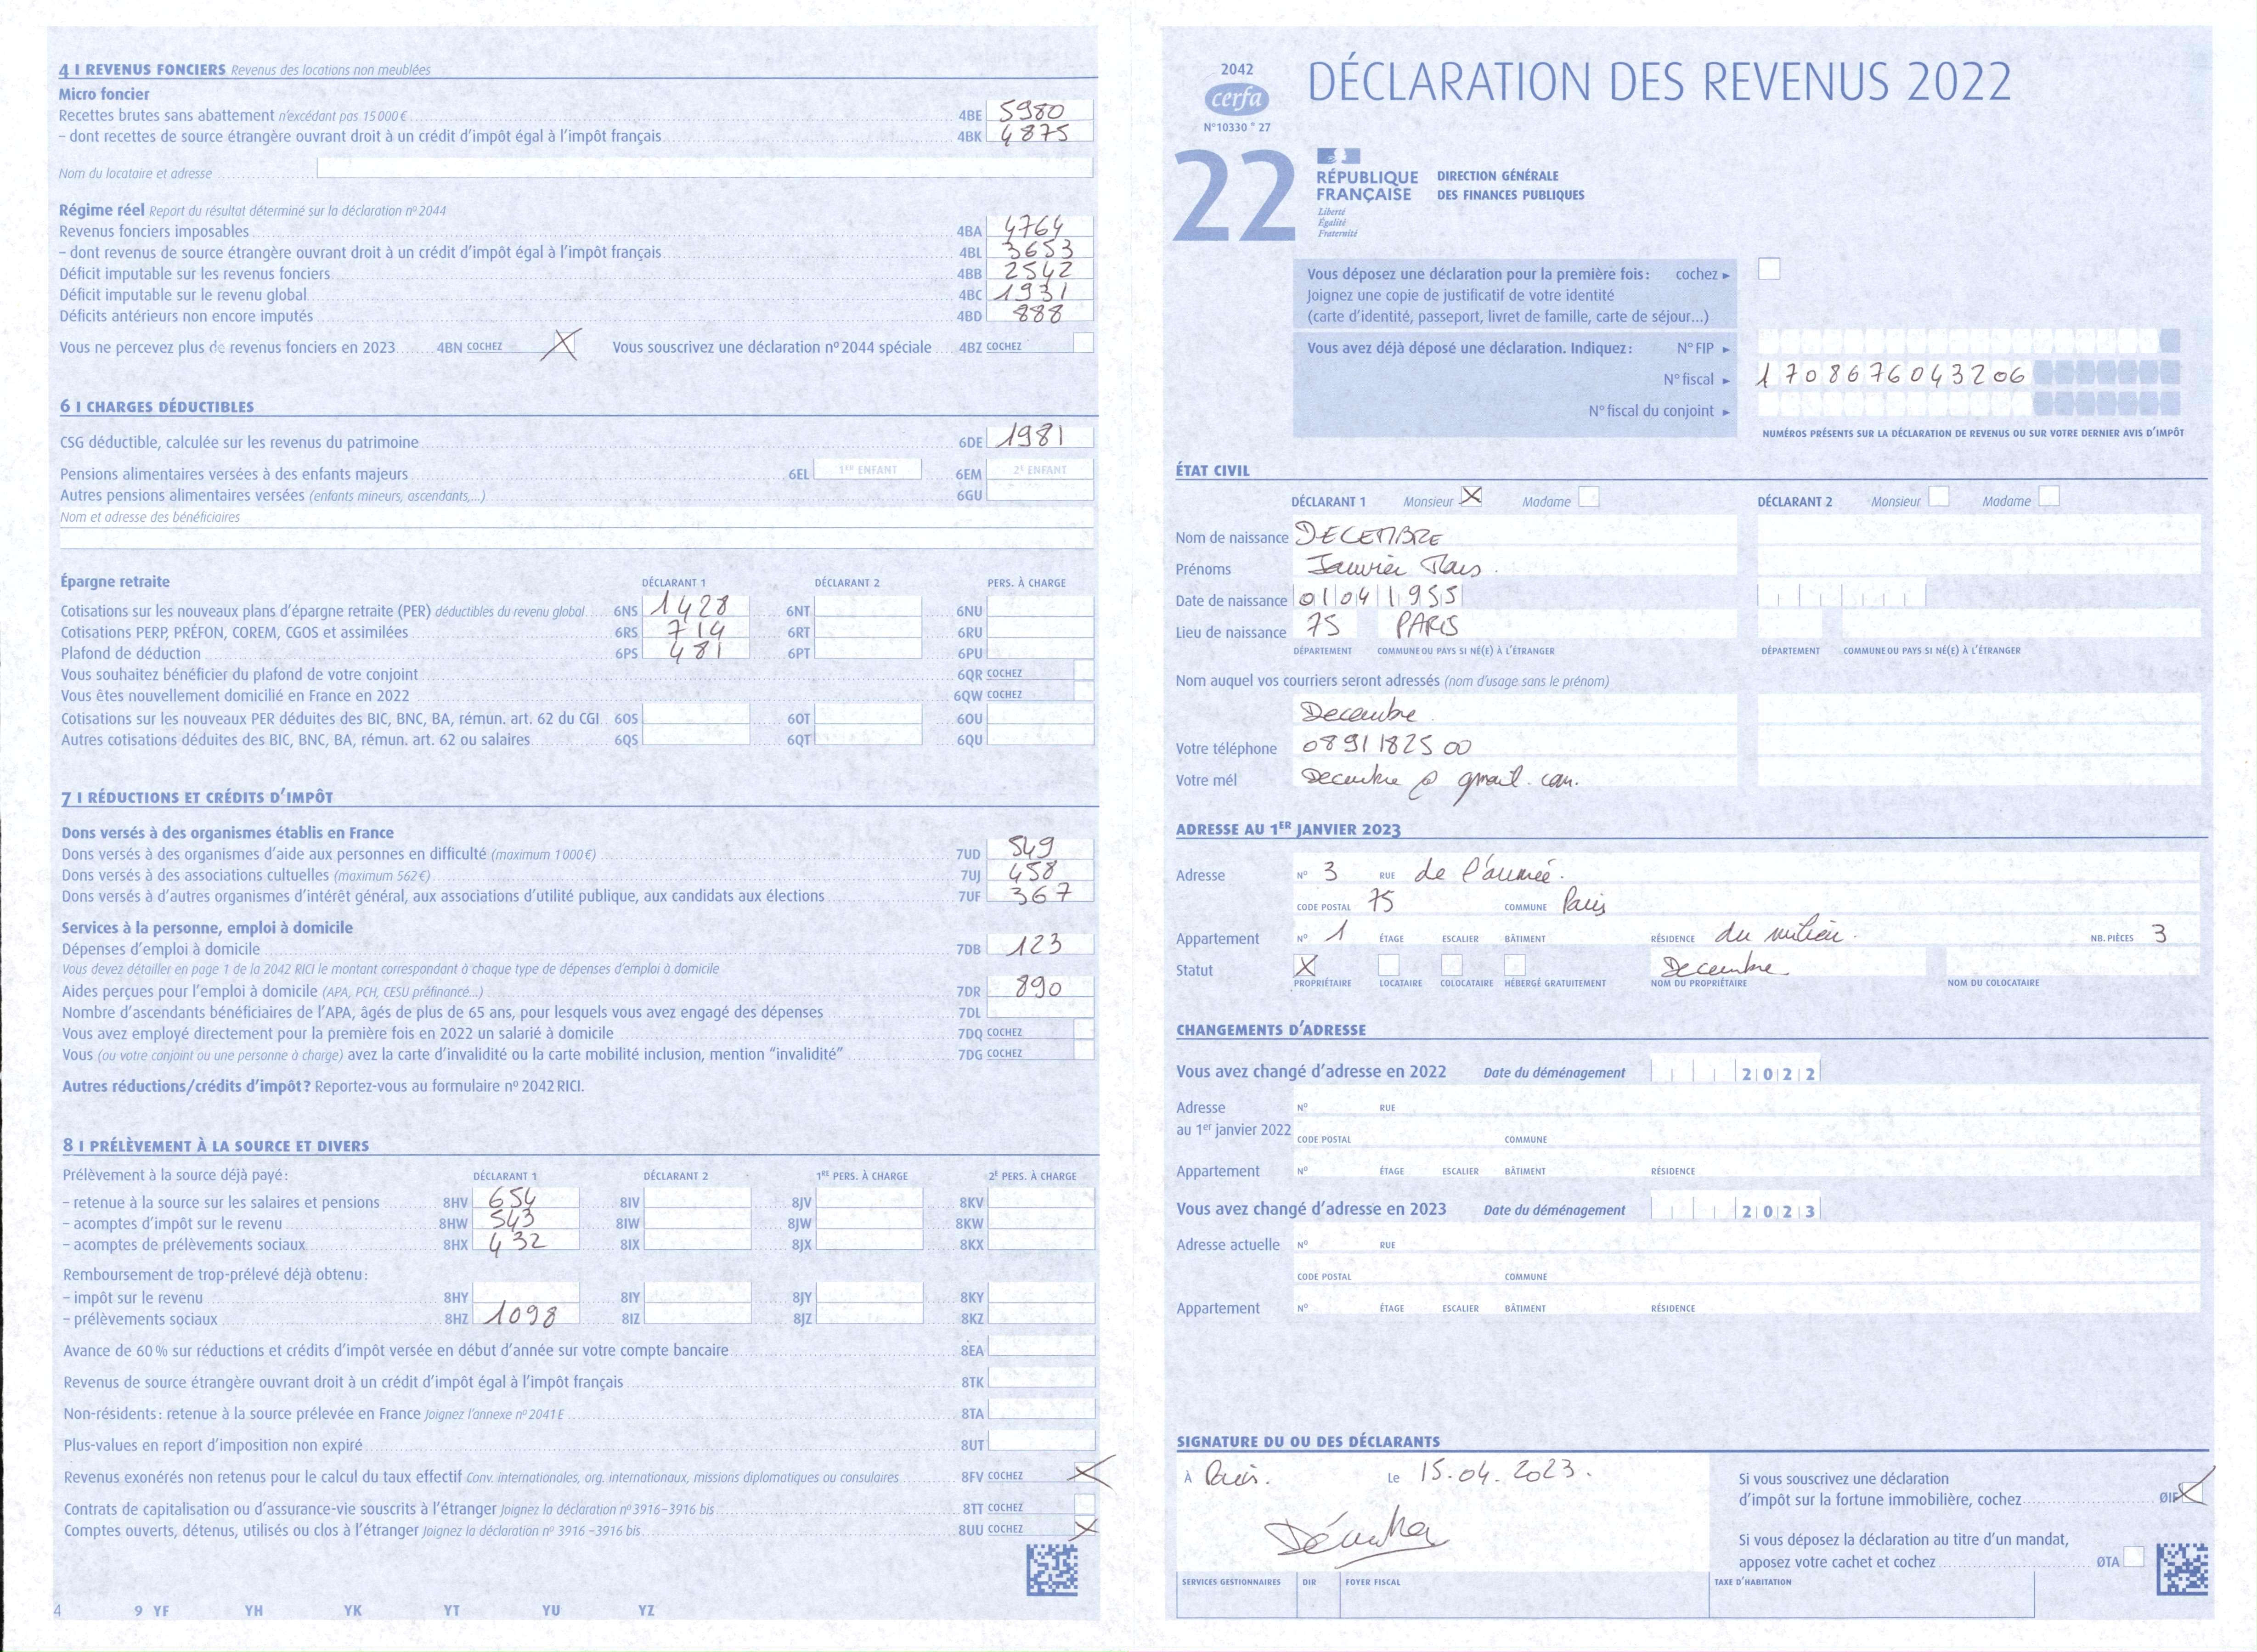 4 I REVENUS FONCIERS Revenus des locations non meublées
Micro foncier
Recettes brutes sans abattement n'excédant pas 15 000 € 4BE 5980
– dont recettes de source étrangère ouvrant droit à un crédit d'impôt égal à l'impôt français 4BK 4875
Nom du locataire et adresse
Régime réel Report du résultat déterminé sur la déclaration nº 2044
Revenus fonciers imposables 4BA 4764
– dont revenus de source étrangère ouvrant droit à un crédit d'impôt égal à l'impôt français 4BL 3653
Déficit imputable sur les revenus fonciers 4BB 2542
Déficit imputable sur le revenu global 4BC 1931
Déficits antérieurs non encore imputés 4BD 888
Vous ne percevez plus de revenus fonciers en 2023 4BN COCHEZ X Vous souscrivez une déclaration nº 2044 spéciale 4BZ COCHEZ
6 I CHARGES DÉDUCTIBLES
CSG déductible, calculée sur les revenus du patrimoine 6DE 1981
Pensions alimentaires versées à des enfants majeurs 6EL 1ER ENFANT 6EM 2E ENFANT
Autres pensions alimentaires versées (enfants mineurs, ascendants,...) 6GU
Nom et adresse des bénéficiaires
Épargne retraite DÉCLARANT 1 DÉCLARANT 2 PERS. À CHARGE
Cotisations sur les nouveaux plans d'épargne retraite (PER) déductibles du revenu global 6NS 1428 6NT 6NU
Cotisations PERP, PRÉFON, COREM, CGOS et assimilées 6RS 714 6RT 6RU
Plafond de déduction 6PS 481 6PT 6PU
Vous souhaitez bénéficier du plafond de votre conjoint 6QR COCHEZ
Vous êtes nouvellement domicilié en France en 2022 6QW COCHEZ
Cotisations sur les nouveaux PER déduites des BIC, BNC, BA, rémun. art. 62 du CGI 6OS 6OT 6OU
Autres cotisations déduites des BIC, BNC, BA, rémun. art. 62 ou salaires 6QS 6QT 6QU
7 I RÉDUCTIONS ET CRÉDITS D'IMPÔT
Dons versés à des organismes établis en France
Dons versés à des organismes d'aide aux personnes en difficulté (maximum 1 000 €) 7UD 549
Dons versés à des associations cultuelles (maximum 562 €) 7UJ 458
Dons versés à d'autres organismes d'intérêt général, aux associations d'utilité publique, aux candidats aux élections 7UF 367
Services à la personne, emploi à domicile
Dépenses d'emploi à domicile 7DB 123
Vous devez détailler en page 1 de la 2042 RICI le montant correspondant à chaque type de dépenses d'emploi à domicile
Aides perçues pour l'emploi à domicile (APA, PCH, CESU préfinancé...) 7DR 890
Nombre d'ascendants bénéficiaires de l'APA, âgés de plus de 65 ans, pour lesquels vous avez engagé des dépenses 7DL
Vous avez employé directement pour la première fois en 2022 un salarié à domicile 7DQ COCHEZ
Vous (ou votre conjoint ou une personne à charge) avez la carte d'invalidité ou la carte mobilité inclusion, mention "invalidité" 7DG COCHEZ
Autres réductions/crédits d'impôt? Reportez-vous au formulaire nº 2042 RICI.
8 I PRÉLÈVEMENT À LA SOURCE ET DIVERS
Prélèvement à la source déjà payé : DÉCLARANT 1 DÉCLARANT 2 1RE PERS. À CHARGE 2E PERS. À CHARGE
– retenue à la source sur les salaires et pensions 8HV 654 8IV 8JV 8KV
– acomptes d'impôt sur le revenu 8HW 543 8IW 8JW 8KW
– acomptes de prélèvements sociaux 8HX 432 8IX 8JX 8KX
Remboursement de trop-prélevé déjà obtenu :
– impôt sur le revenu 8HY 8IY 8JY 8KY
– prélèvements sociaux 8HZ 1098 8IZ 8JZ 8KZ
Avance de 60 % sur réductions et crédits d'impôt versée en début d'année sur votre compte bancaire 8EA
Revenus de source étrangère ouvrant droit à un crédit d'impôt égal à l'impôt français 8TK
Non-résidents : retenue à la source prélevée en France Joignez l'annexe nº 2041 E 8TA
Plus-values en report d'imposition non expiré 8UT
Revenus exonérés non retenus pour le calcul du taux effectif Conv. internationales, org. internationaux, missions diplomatiques ou consulaires 8FV COCHEZ X
Contrats de capitalisation ou d'assurance-vie souscrits à l'étranger Joignez la déclaration nº 3916–3916 bis 8TT COCHEZ
Comptes ouverts, détenus, utilisés ou clos à l'étranger Joignez la déclaration nº 3916 –3916 bis 8UU COCHEZ X
4 9 YF YH YK YT YU YZ
2042
cerfa
N° 10330 * 27
DÉCLARATION DES REVENUS 2022
22
RÉPUBLIQUE
FRANÇAISE
Liberté
Égalité
Fraternité
DIRECTION GÉNÉRALE
DES FINANCES PUBLIQUES
Vous déposez une déclaration pour la première fois : cochez ►
Joignez une copie de justificatif de votre identité
(carte d'identité, passeport, livret de famille, carte de séjour...)
Vous avez déjà déposé une déclaration. Indiquez : N° FIP ►
N° fiscal ► 1708676043206
N° fiscal du conjoint ►
NUMÉROS PRÉSENTS SUR LA DÉCLARATION DE REVENUS OU SUR VOTRE DERNIER AVIS D'IMPÔT
ÉTAT CIVIL
DÉCLARANT 1 Monsieur X Madame DÉCLARANT 2 Monsieur Madame
Nom de naissance DECEMBRE
Prénoms Janvier Mars
Date de naissance 01041955
Lieu de naissance 75 PARIS
DÉPARTEMENT COMMUNE OU PAYS SI NÉ(E) À L'ÉTRANGER DÉPARTEMENT COMMUNE OU PAYS SI NÉ(E) À L'ÉTRANGER
Nom auquel vos courriers seront adressés (nom d'usage sans le prénom)
Decembre
Votre téléphone 0891182500
Votre mél Decembre @ gmail.com.
ADRESSE AU 1ER JANVIER 2023
Adresse N° 3 RUE de l'année.
CODE POSTAL 75 COMMUNE Paris
Appartement N° 1 ÉTAGE ESCALIER BÂTIMENT RÉSIDENCE du milieu. NB. PIÈCES 3
Statut X Decembre
PROPRIÉTAIRE LOCATAIRE COLOCATAIRE HÉBERGÉ GRATUITEMENT NOM DU PROPRIÉTAIRE NOM DU COLOCATAIRE
CHANGEMENTS D'ADRESSE
Vous avez changé d'adresse en 2022 Date du déménagement 2022
Adresse N° RUE
au 1er janvier 2022 CODE POSTAL COMMUNE
Appartement N° ÉTAGE ESCALIER BÂTIMENT RÉSIDENCE
Vous avez changé d'adresse en 2023 Date du déménagement 2023
Adresse actuelle N° RUE
CODE POSTAL COMMUNE
Appartement N° ÉTAGE ESCALIER BÂTIMENT RÉSIDENCE
SIGNATURE DU OU DES DÉCLARANTS
À Paris. Le 15.04.2023.
Si vous souscrivez une déclaration
d'impôt sur la fortune immobilière, cochez ØIF X
Si vous déposez la déclaration au titre d'un mandat,
apposez votre cachet et cochez ØTA
SERVICES GESTIONNAIRES DIR FOYER FISCAL TAXE D'HABITATION